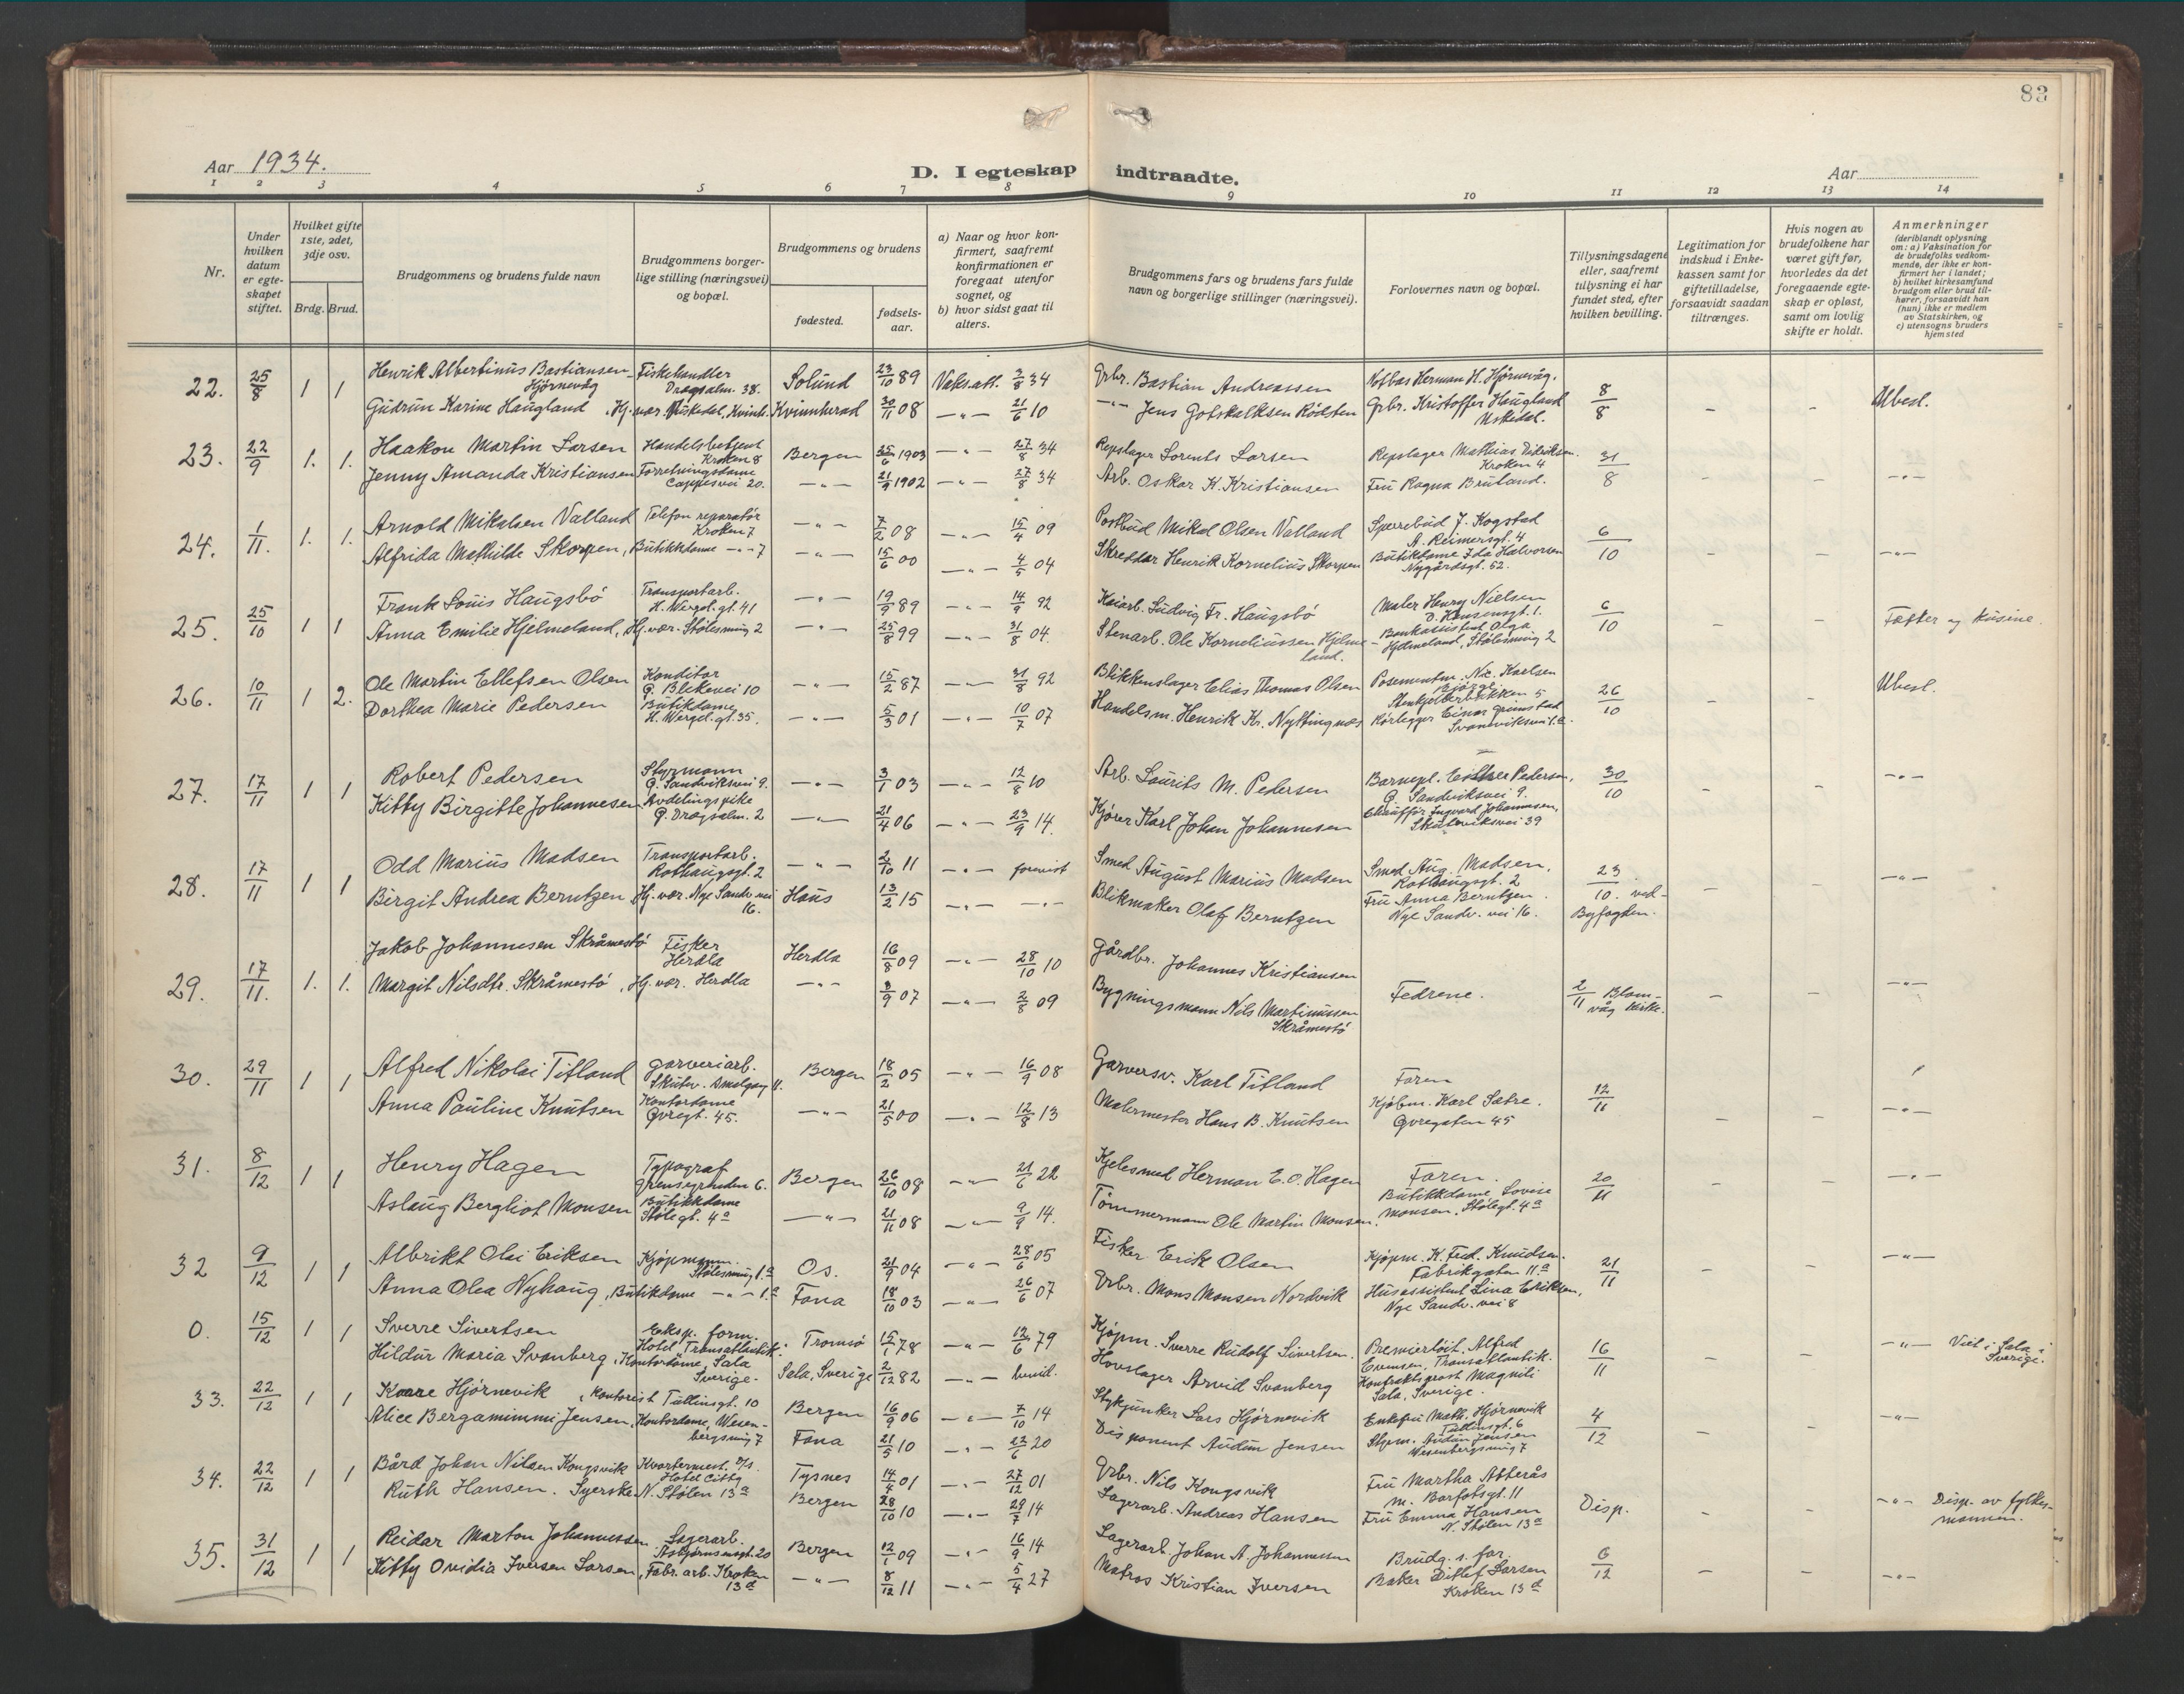 83
Aar 1934.
D. I egteskap indtraadte.
Aar
1 2 3 4 5 6 7 8 9 10 11 12 13 14
Nr.
Under hvilken datum er egteskapet stiftet.
Hvilket gifte 1ste, 2det, 3dje osv.
Brdg. Brud.
Brudgommens og brudens fulde navn
Brudgommens borgerlige stilling (næringsvei) og bopæl.
Brudgommens og brudens
fødested.
fødselsaar.
a) Naar og hvor konfirmert, saafremt konfirmationen er foregaat utenfor sognet, og
b) hvor sidst gaat til alters.
Brudgommens fars og brudens fars fulde navn og borgerlige stillinger (næringsvei).
Forlovernes navn og bopæl.
Tillysningsdagene eller, saafremt tillysning ei har fundet sted, efter hvilken bevilling.
Legitimation for indskud i Enkekassen samt for giftetilladelse, forsaavidt saadan tiltrænges.
Hvis nogen av brudefolkene har været gift før, hvorledes da det foregaaende egteskap er opløst, samt om lovlig skifte er holdt.
Anmerkninger (deriblandt oplysning om: a) Vaksination for de brudefolks vedkommende, der ikke er konfirmert her i landet; b) hvilket kirkesamfund brudgom eller brud tilhører, forsaavidt han (hun) ikke er medlem av Statskirken, og c) utensogns bruders hjemsted
22. 25/8 1 1 Henrik Albertinus Bastiansen Hjørnevåg Fiskehandler Dragsalm. 38. Solund 23/10 89 Vaks.att. 3/8 34 Grbr. Bastian Andreassen Herman H. Hjørnevåg. 8/8 - - Ubesl.
Gudrun Karine Haugland, Hj. vær. Uskedal, Kvinnh. Kvinnherad 30/11 08 -"- 21/6 10 -"- Jens Gotskalksen Rödsten Grbr. Kristoffer Haugland Uskedal.
23. 22/9 1. 1. Haakon Martin Larsen Handelsbetjent Kroken 8 Bergen 25/6 1903 -"- 27/8 34 Repslager Lorents Larsen Repslager Mathias Didriksen. Kroken 4 31/8 - - -"-
Jenny Amanda Kristiansen Forretningsdame Cappesvei 20. -"- 21/9 1902 -"- 27/8 34 Arb. Oskar K. Kristiansen Fru Ragna Bruland.
24. 1/11. 1. 1. Arnold Mikalsen Valland Telefon reparatør Kroken 7 -"- 7/2 08 -"- 15/4 09 Postbud Mikal Olsen Valland Sperrebud J. Kogstad A. Reimersgt. 4 6/10 - - -"-
Alfrida Mathilde Skorpen, Butikkdame -"- 7 -"- 15/6 00 -"- 4/5 04 Skreddar Henrik Kornelius Skorpen Butikdame Ida Halvorsen Nygårdsgt. 52.
25. 25/10 1 1 Frank Louis Haugsbö Transportarb. H. Wergel. gt. 41 -"- 19/9 89 -"- 14/9 92 Kaiarb. Ludvig Fr. Haugsbö Maler Henry Nielsen D. Hansensgt. 1. 6/10 - - Fætter og kusine.
Anna Emilie Hjelmeland, Hj. vær. Stölesmug 2 -"- 25/8 99 -"- 31/8 04. Stenarb. Ole Korneliussen Hjelmeland. Bankassistent Olga Hjelmeland, Stölesmug 2
26. 10/11 1 2. Ole Martin Ellefsen Olsen Konditor G. Blekevei 10 -"- 15/2 87 -"- 31/8 92 Blikkenslager Elias Thomas Olsen Posementm. Nix. Karlsen 26/10 - - Ubesl.
Dorthea Marie Pedersen Butikdame H. Wergel. gt. 35. -"- 5/3 01 -"- 10/7 07 Handelsm. Henrik Kr. Nyttingnes Rörlegger Einar Grimstad Svaneviksvei 1.a.
27. 17/11 1 1 Robert Pedersen Styrmann G. Sandviksvei 9. -"- 3/1 03 -"- 12/8 10 Arb. Laurits M. Pedersen Barnepl. Esther Pedersen, G. Sandviksvei 9. 30/10 - - -"-
Kitty Birgitte Johannesen Avdelingspike G. Dragsalm. 2 -"- 21/4 06 -"- 23/9 14. Kjörer Karl Johan Johannesen Chauffør Ingvard Johannesen, Skuteviksvei 39
28. 17/11 1 1 Odd Marius Madsen Transportarb. Rothaugsgt. 2 -"- 2/10 11 -"- forevist Smed August Marius Madsen Smed Aug. Madsen. Rothaugsgt. 2 23/10. ved Byfogden. - - -"-
Birgit Andrea Berntzen, Hj. vær. Nye Sandv. vei 16. Haus 13/2 15 -"- -"- Blikmaker Olaf Berntzen Fru Anna Berntzen. Nye Sandv. vei 16.
29. 17/11. 1. 1. Jakob Johannesen Skråmestö Fisker Herdla Herdla 16/8 09 -"- 28/10 10 Gårdbr. Johannes Kristiansen Fedrene. 2/11 Blomvåg kirke. - - -"-
Margit Nilsdtr. Skråmestö, Hj. vær. Herdla -"- 3/9 07 -"- 2/8 09 Bygningsmann Nils Martinussen Skråmestö
30. 29/11 1 1 Alfred Nikolai Titland Garveriarb. Skutev. Smalgang 11. Bergen 18/2 05 -"- 16/9 08 Garversv. Karl Titland Faren 12/11 - - -"-
Anna Pauline Knutsen Kontordame Øvregt. 45. -"- 21/5 00 -"- 12/8 13 Malermester Hans B. Knutsen Kjöbm. Karl Sætre. Øvregaten 45
31. 8/12 1 1 Henry Hagen Typograf Grensegrenden 6. Bergen 26/10 08 -"- 21/6 22 Kjelesmed Herman E.O. Hagen Faren. 20/11 - - -"-
Aslaug Bergliot Monsen Butikkdame Stölegt. 4a -"- 21/11 08 -"- 9/9 14. Tömmermann Ole Martin Monsen. Butikkdame Lovise Monsen, Stölegt. 4a
32 9/12 1 1 Albrikt Olai Eriksen Kjöpmann. Stölesmug 1.a Os. 21/9 04 -"- 28/6 05 Fisker Erik Olsen Kjöpm. K. Fred. Knudsen. Fabrikgaten 11a 21/11 - - -"-
Anna Olea Nyhaug, Butikdame -"- 1.a Fana 18/10 03 -"- 26/6 07 Grbr. Mons Monsen Nordvik Husassistent Lina Eriksen, Nye Sandv. vei 8
0. 15/12 1 1 Sverre Sivertsen Eksp. form. Hotel Transatlantik. Tromsö 15/1 78 -"- 12/6 79 Kjöpm. Sverre Rudolf Sivertsen. Premierlöit. Alfred Evensen, Transatlantik. 16/11 - - -"- Viet i Sala i Sverige.
Hildur Maria Svanberg, Kontordame, Sala Sverige. Sala, Sverige 2/12 82 -"- bevid. Hovslager Arvid Svanberg Kontraktsprost Magnili Sala, Sverige.
33. 22/12 1 1 Kaare Hjörnevik, Kontorist Tullinsgt. 10 Bergen 16/9 06 -"- 7/10 14 Stykjunker Lars Hjörnevik Enkefru Math. Hjörnevik Tullinsgt. 6 4/12 - - -"-
Alice Bergamimmi Jensen, Kontordame, Wesenbergsmug 7 Fana 21/5 10 -"- 22/6 20 Disponent Audun Jensen Skipm. Audun Jensen Wesenbergsmug 7
34. 22/12 1 1 Bård Johan Nilsen Kongsvik Kvartermest. Hotel Citty Tysnes 14/4 01 -"- 27/12 01 Grbr. Nils Kongsvik Fru Martha Atterås M. Barfotsgt. 11 Disp. - - -"- Disp. av fylkesmannen.
Ruth Hansen. Syerske N. Stölen 13a Bergen 28/10 10 -"- 29/7 14 Lagerarb. Andreas Hansen Fru Emma Hansen N. Stölen 13a
35. 31/12 1 1 Reidar Marton Johannessen, Lagerarb. Asbjörnsensgt. 20 Bergen 12/1 09 -"- 16/9 14 Lagerarb. Johan A. Johannessen Brudg. s. far. 6/12 - - -"-
Kitty Ovidia Iversen Larsen, Fabr. arb. Kroken 13d -"- 8/12 11 -"- 5/4 27 Matros Kristian Iversen Baker Ditlef Larsen Kroken 13d